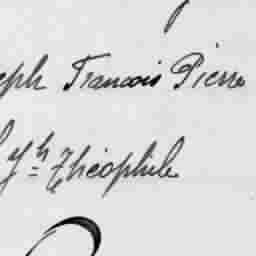 eph Francois Pierre
Jh Théophile